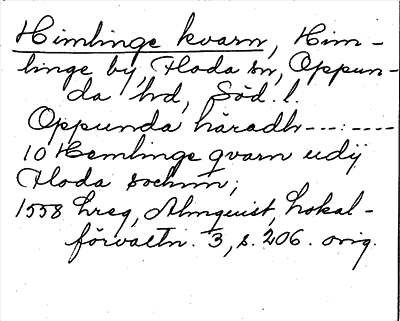 Himlinge kvarn, Him-
linge by, Floda sn, Oppun-
da hd, Söd. l.
Oppunda häradh---:----
10 Hemlinge qvarn udij
Floda sochnn;
1558 hreg, Almquist, Lokal-
förvaltn. 3, s. 206. orig.